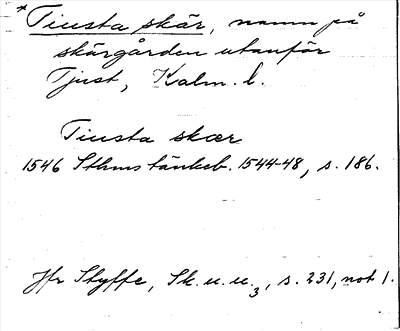 *Tiusta skär, namn på
skärgården utanför
Tjust, Kalm. l.
Tiusta skær
1546 Sthms tänkeb. 1544-48, s. 186.
Jfr Styffe, Sk. u. u.3, s. 231, not 1.